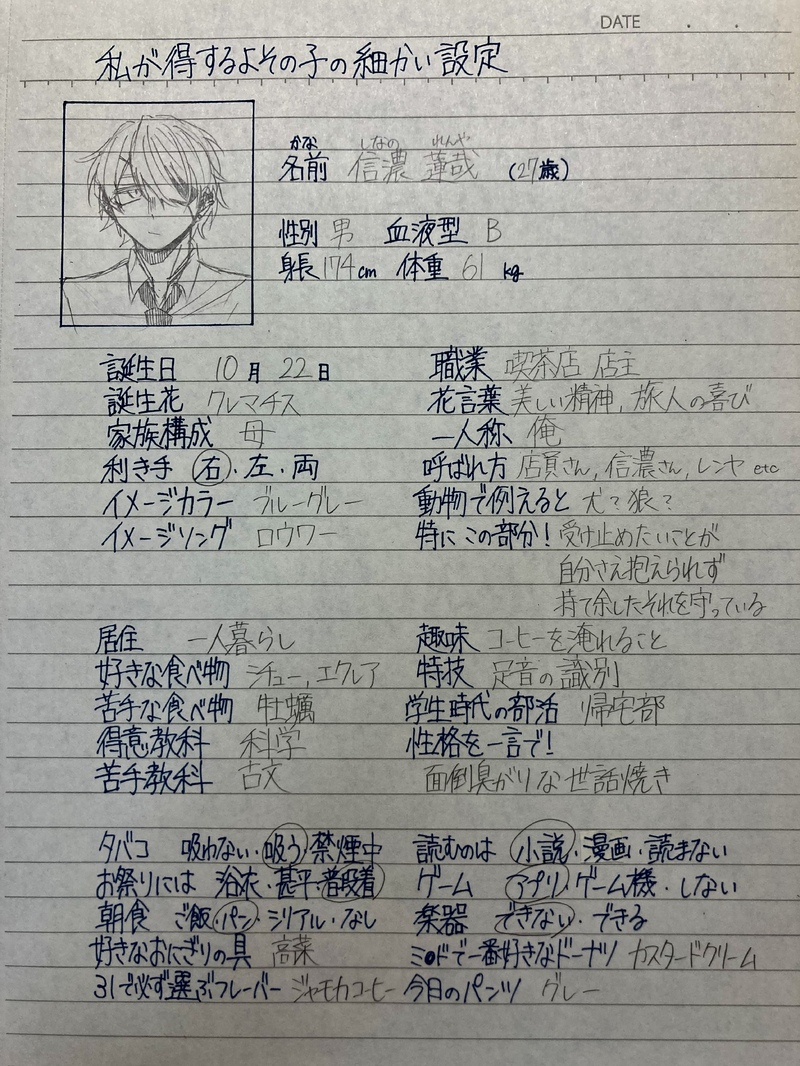 DATE . .
私が得するよその子の細かい設定
かな しなの れんや
名前 信濃 蓮哉 (27歳)
性別 男 血液型 B
身長 174cm 体重 61 kg
誕生日 10月 22日 職業 喫茶店 店主
誕生花 クレマチス 花言葉 美しい精神, 旅人の喜び
家族構成 母 一人称 俺
利き手 右・左・両 呼ばれ方 店員さん, 信濃さん, レンヤ etc
イメージカラー ブルーグレー 動物で例えると 犬?狼?
イメージソング ロウワー 特にこの部分! 受け止めたいことが
自分さえ抱えられず
持て余したそれを守っている
居住 一人暮らし 趣味 コーヒーを淹れること
好きな食べ物 シチュー, エクレア 特技 足音の識別
苦手な食べ物 牡蠣 学生時代の部活 帰宅部
得意教科 科学 性格を一言で!
苦手教科 古文 面倒臭がりな世話焼き
タバコ 吸わない・吸う・禁煙中 読むのは 小説・漫画・読まない
お祭りには 浴衣・甚平・普段着 ゲーム アプリ・ゲーム機・しない
朝食 ご飯・パン・シリアル・なし 楽器 できない・できる
好きなおにぎりの具 高菜 ミ●ドで一番好きなドーナツ カスタードクリーム
31で必ず選ぶフレーバー ジャモカコーヒー 今日のパンツ グレー